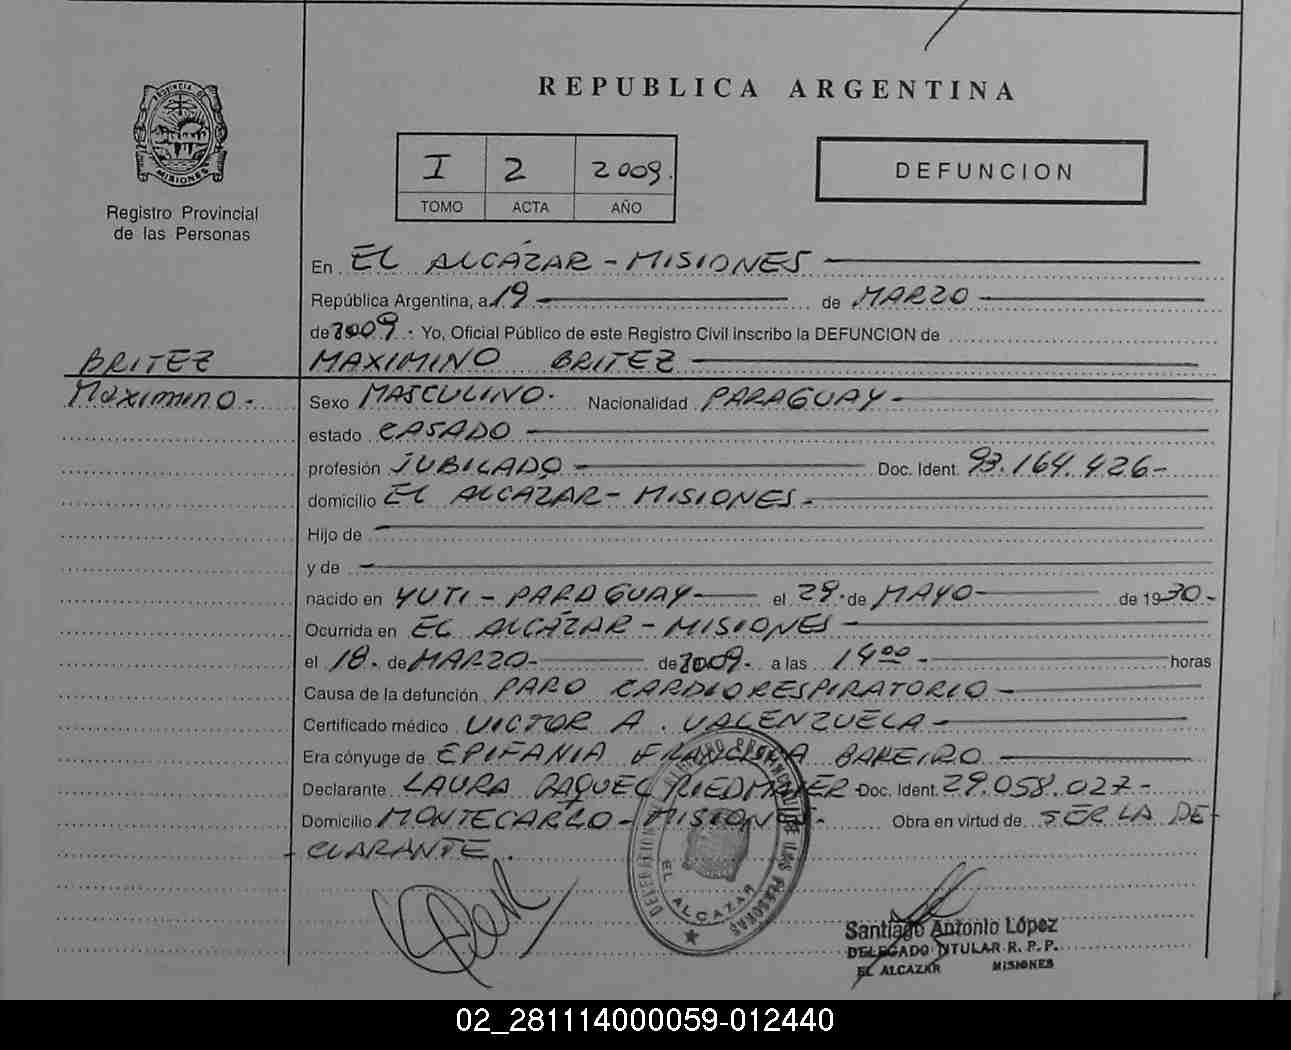 REPUBLICA ARGENTINA
PROVINCIA DE
MISIONES
Registro Provincial
de las Personas
I 2 2009.
TOMO ACTA AÑO
DEFUNCION
En EL ALCÁZAR - MISIONES
República Argentina, a 19 de MARZO
de 2009. Yo, Oficial Público de este Registro Civil inscribo la DEFUNCION de
BRITEZ MAXIMINO BRITEZ
Maximino. Sexo MASCULINO. Nacionalidad PARAGUAY
estado CASADO
profesión JUBILADO Doc. Ident. 93.164.426-
domicilio EL ALCÁZAR - MISIONES.
Hijo de
y de
nacido en YUTI - PARAGUAY el 29. de MAYO de 1930.-
Ocurrida en EL ALCÁZAR - MISIONES
el 18. de MARZO- de 2009. a las 14⁰⁰ horas
Causa de la defunción PARO CARDIORESPIRATORIO
Certificado médico VICTOR A. VALENZUELA
Era cónyuge de EPIFANIA FRANCISCA BAREIRO
Declarante LAURA RAQUEL RIEDMAYER Doc. Ident. 29.058.027-
Domicilio MONTECARLO - MISIONES. Obra en virtud de SER LA DE-
-CLARANTE.
EL ALCAZAR
Santiago Antonio López
DELEGADO TITULAR R. P. P.
EL ALCAZAR MISIONES
02_281114000059-012440